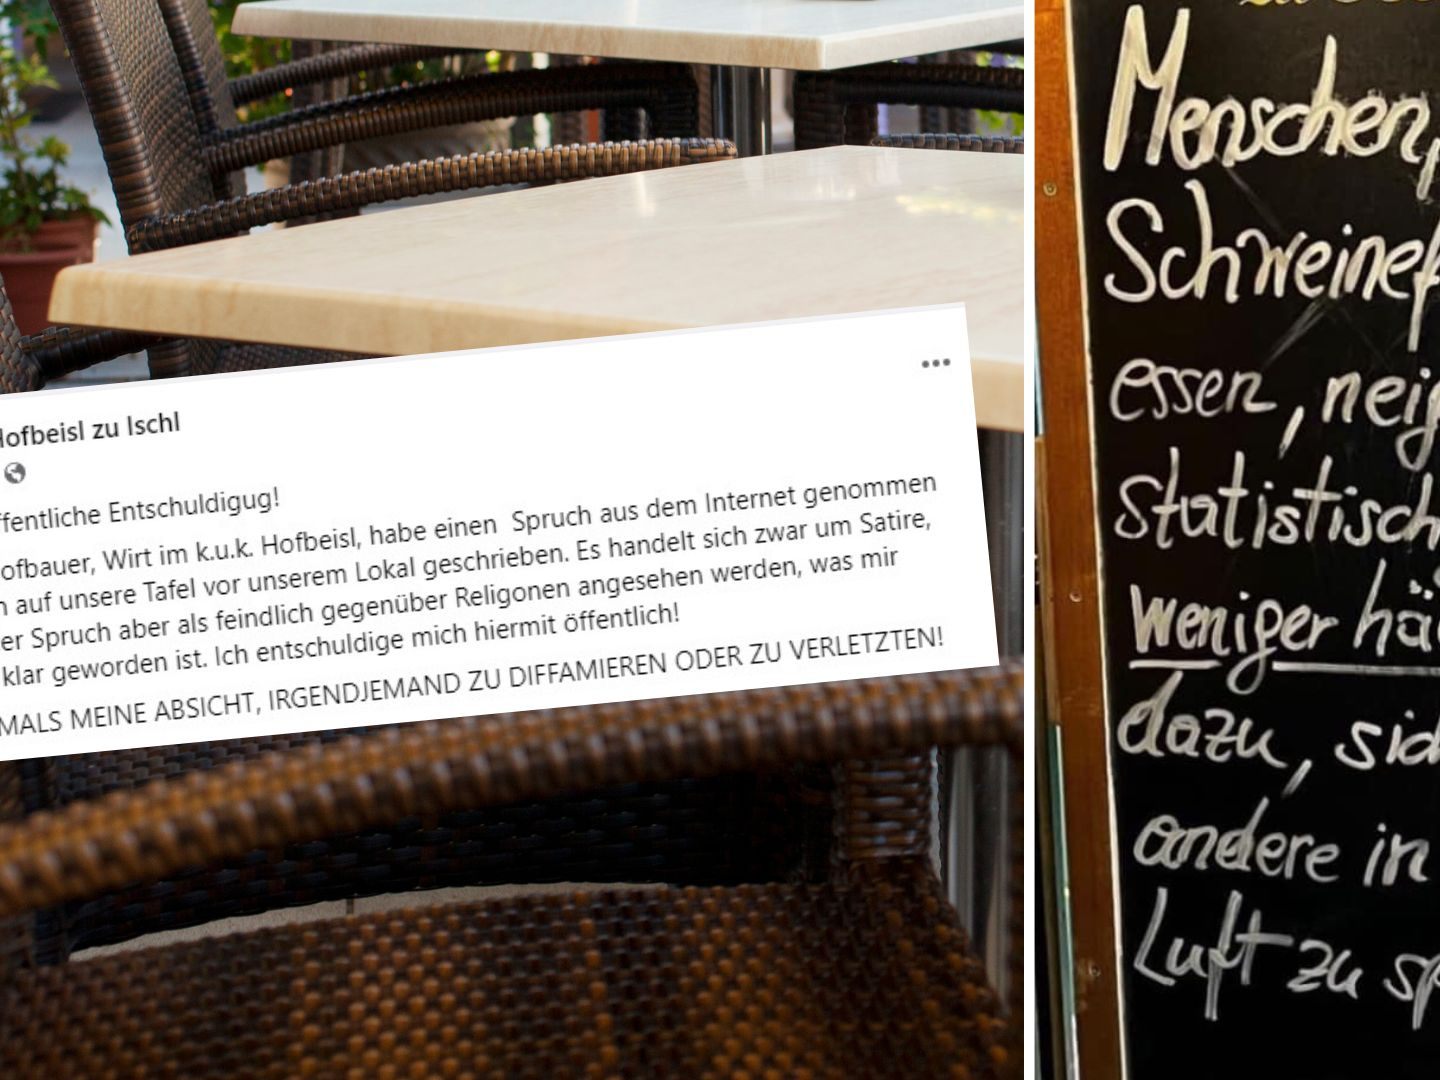 Hofbeisl zu Ischl
ffentliche Entschuldigug!
ofbauer, Wirt im k.u.k. Hofbeisl, habe einen Spruch aus dem Internet genommen
n auf unsere Tafel vor unserem Lokal geschrieben. Es handelt sich zwar um Satire,
er Spruch aber als feindlich gegenüber Religonen angesehen werden, was mir
klar geworden ist. Ich entschuldige mich hiermit öffentlich!
MALS MEINE ABSICHT, IRGENDJEMAND ZU DIFFAMIEREN ODER ZU VERLETZTEN!
Menschen,
Schweinef
essen, neig
statistisch
weniger hä
dazu, sic
andere in
Luft zu sp